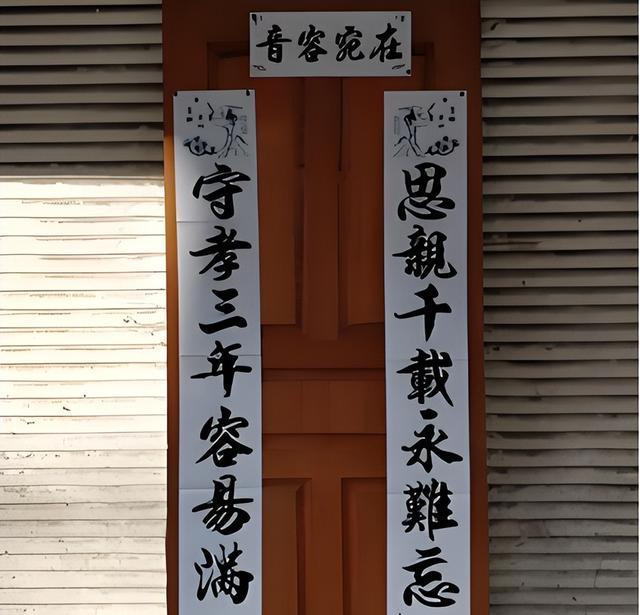 音容宛在
守孝三年容易满
思親千載永難忘